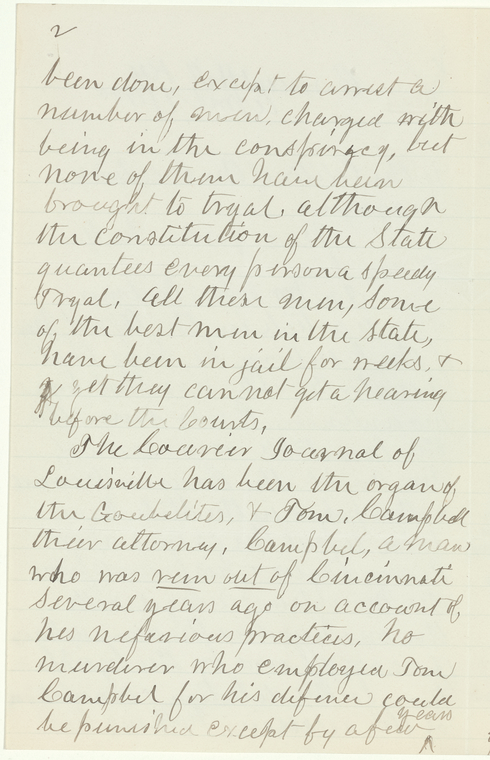 2
been done, except to arrest a
number of men, charged with
being in the conspiracy, but
none of them have been
brought to tryal, although
the constitution of the State
guantees every person a speedy
Tryal, All these men, some
of the best men in the State,
have been in jail for weeks, &
yet they cannot get a hearing
before the Courts,
The Coureir Journal of
Louisville has been the organ of
the Goubelites, & Tom, Campbell
their attorney, Campbel, a man
who was run out of Cincinnati
several years ago on account of
his nefarious practices, no
murderer who employed Tom
Campbel for his defence could
years
be punished except by a few